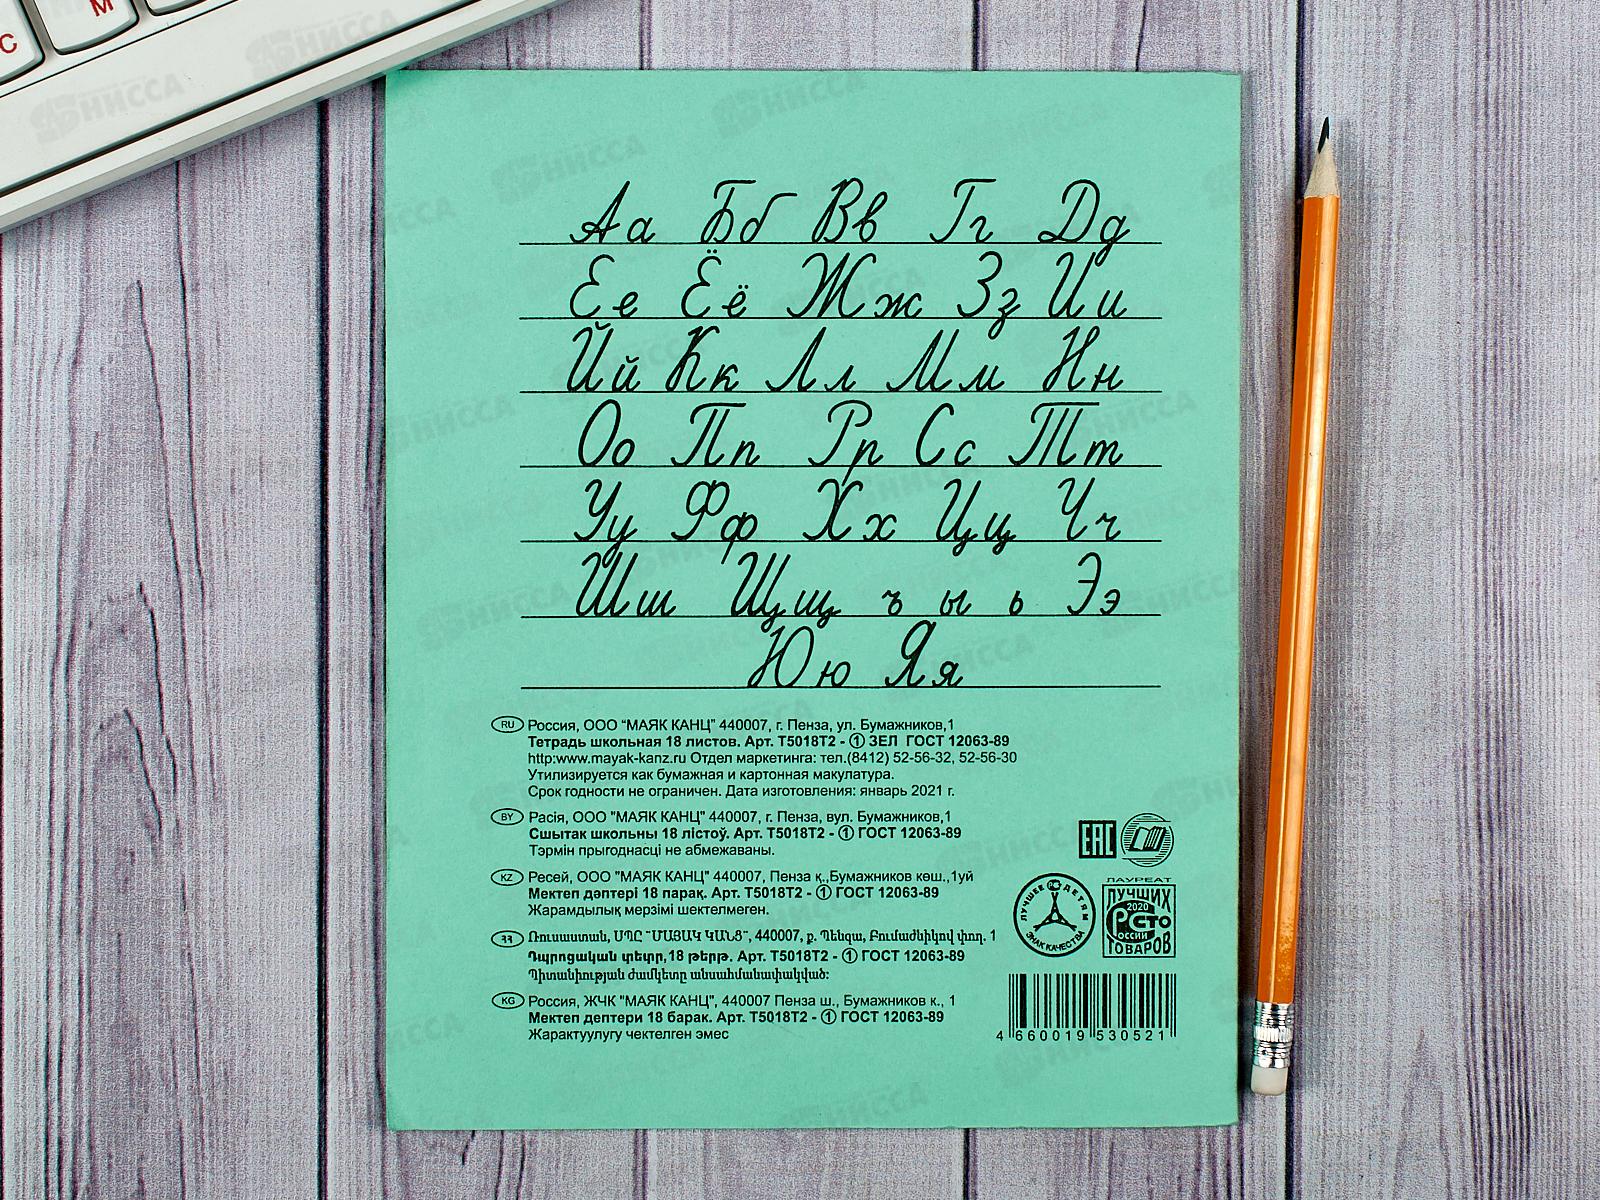 С М
Аа Бб Вв Гг Дд
Ее Ёё Жж Зз Ии
Йй Кк Лл Мм Нн
Оо Пп Рр Сс Тт
Уу Фф Хх Цц Чч
Шш Щщ ъ ы ь Ээ
Юю Яя
RU Россия, ООО "МАЯК КАНЦ" 440007, г. Пенза, ул. Бумажников,1
Тетрадь школьная 18 листов. Арт. Т5018Т2 - ① ЗЕЛ ГОСТ 12063-89
http:www.mayak-kanz.ru Отдел маркетинга: тел.(8412) 52-56-32, 52-56-30
Утилизируется как бумажная и картонная макулатура.
Срок годности не ограничен. Дата изготовления: январь 2021 г.
BY Расія, ООО "МАЯК КАНЦ" 440007, г. Пенза, вул. Бумажников,1
Сшытак школьны 18 лістоў. Арт. Т5018Т2 - ① ГОСТ 12063-89
Тэрмін прыгоднасці не абмежаваны.
KZ Ресей, ООО "МАЯК КАНЦ" 440007, Пенза қ.,Бумажников көш.,1уй
Мектеп дәптері 18 парақ. Арт. Т5018Т2 - ① ГОСТ 12063-89
Жарамдылық мерзімі шектелмеген.
ՀՀ Ռուսաստան, ՍՊԸ "ՄԱՅԱԿ ԿԱՆՑ", 440007, ք. Պենզա, Բումաժնիկով փող. 1
Դպրոցական տետր,18 թերթ. Арт. Т5018Т2 - ① ГОСТ 12063-89
Պիտանիության ժամկետը անսահմանափակված:
KG Россия, ЖЧК "МАЯК КАНЦ", 440007 Пенза ш., Бумажников к., 1
Мектеп дептери 18 барак. Арт. Т5018Т2 - ① ГОСТ 12063-89
Жарактуулугу чектелген эмес
ЕАС
ЛУЧШЕЕ ДЕТЯМ
ЗНАК КАЧЕСТВА
ЛАУРЕАТ
ЛУЧШИХ
2020
СТО
РОССИИ
ТОВАРОВ
4 660019 530521
НИССА